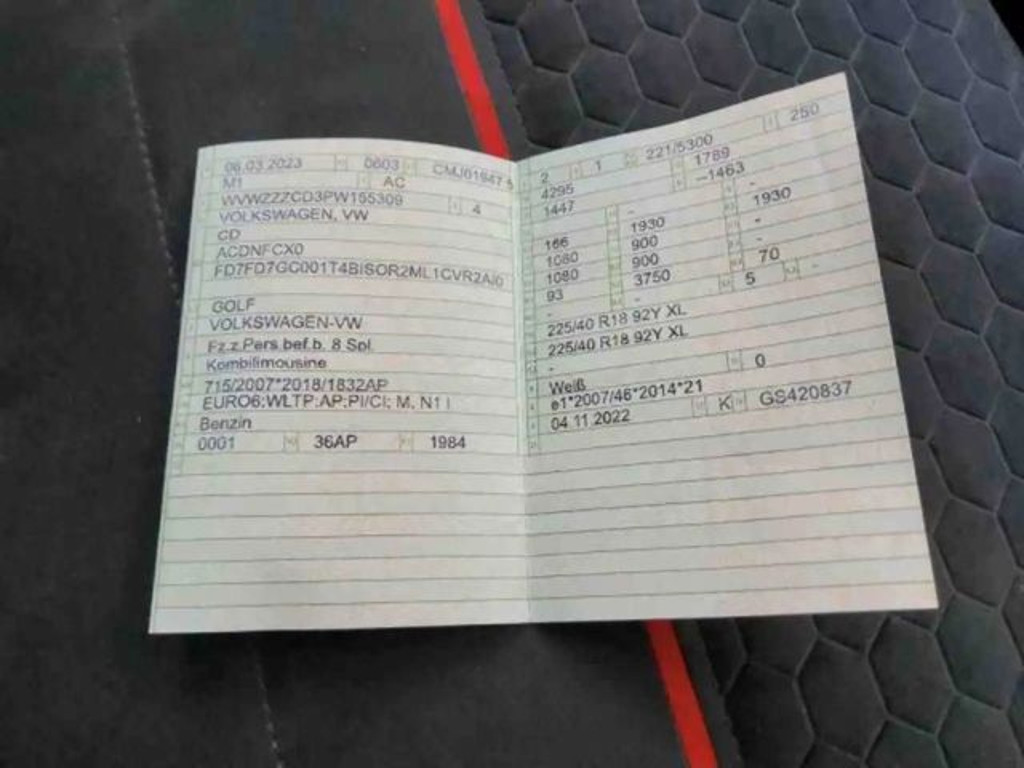 06.03.2023 0603 CMJ01847
M1 AC
WVWZZZCD3PW155309 4
VOLKSWAGEN, VW
CD
ACDNFCX0
FD7FD7GC001T4BISOR2ML1CVR2A/0
GOLF
VOLKSWAGEN-VW
Fz.z.Pers.bef.b. 8 Spl.
Kombilimousine
715/2007*2018/1832AP
EURO6;WLTP;AP;PI/CI; M, N1 I
Benzin
0001 36AP 1984
2 1 221/5300 250
4295 1789
1447 –1463
- -
166 1930 1930
1080 900 -
1080 900 -
93 3750 70
- - 5 -
225/40 R18 92Y XL
225/40 R18 92Y XL
-
Weiß 0
e1*2007/46*2014*21
04.11.2022 K GS420837